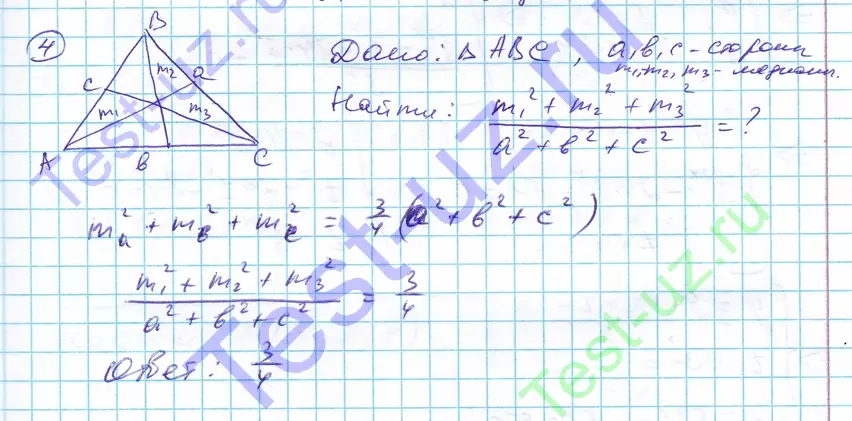 4
B
m₂
a
c
m₁
m₃
A
в
C
Дано: Δ ABC, a, в, c - стороны
m₁, m₂, m₃ - медианы.
Найти: (m₁² + m₂² + m₃²) / (a² + в² + c²) = ?
mₐ² + m_в² + m_c² = 3/4 (a² + в² + c²)
(m₁² + m₂² + m₃²) / (a² + в² + c²) = 3/4
Ответ: 3/4
Test-uz.ru
Test-uz.ru
Test-uz.ru
Test-uz.ru